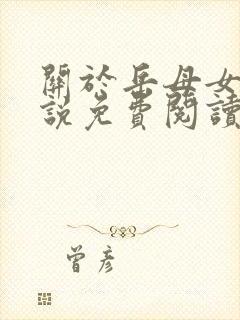 關於岳母女
說免費閱讀
曾彥